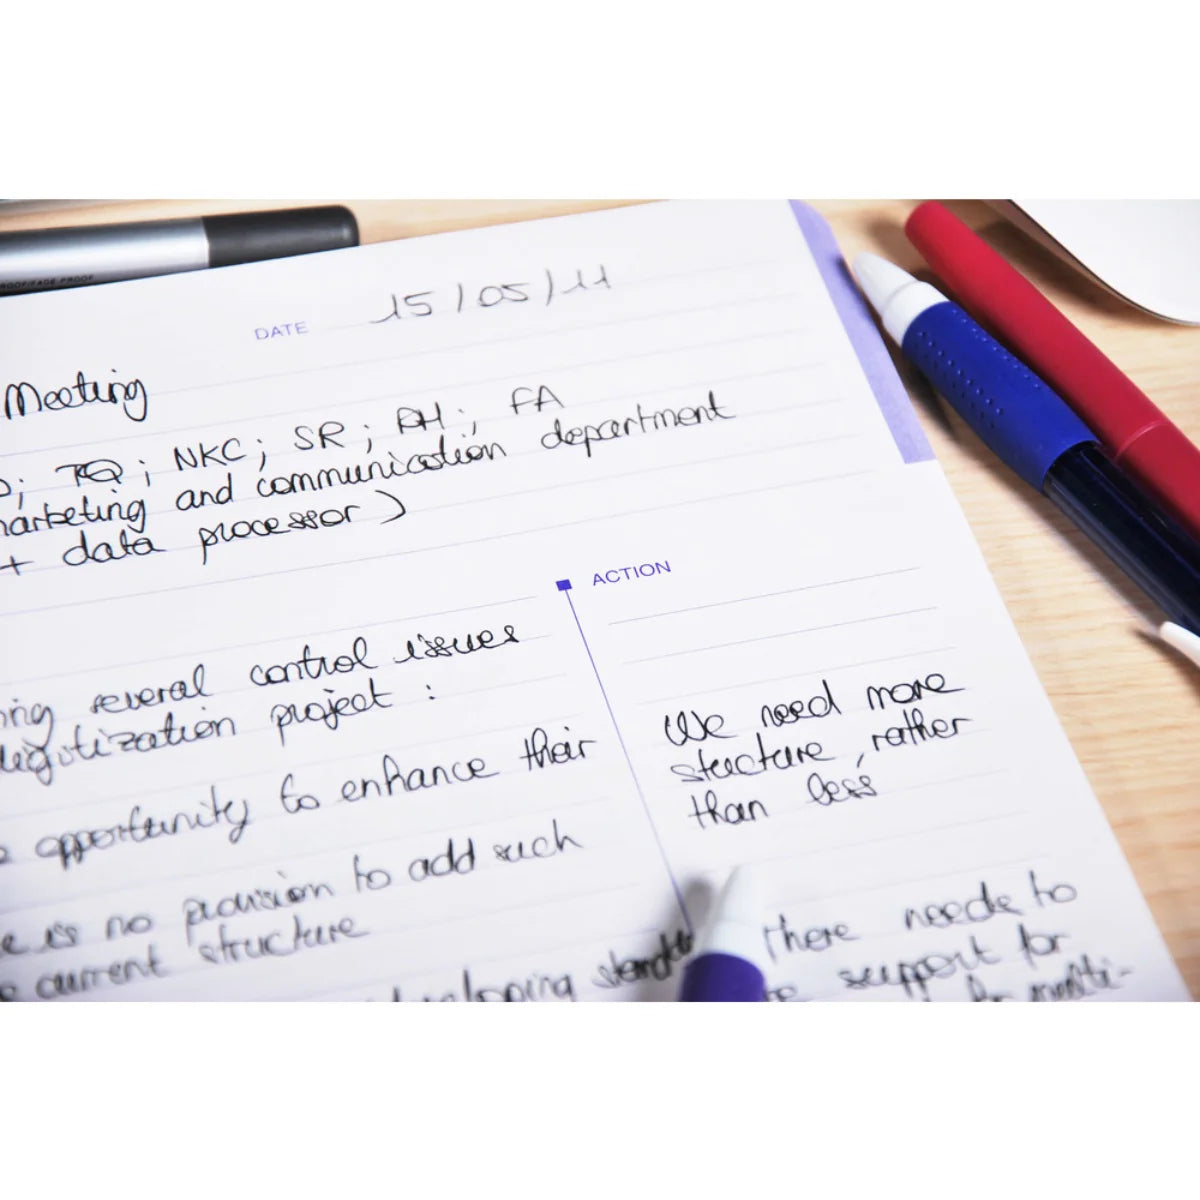 PROOF/FADE PROOF
DATE 15/05/11
Meeting
; TQ; NKC; SR; AH; FA
marketing and communication department
+ data processor)
ACTION
several control issues
project:
opportunity to enhance their
is no provision to add such
current structure
developing
We need more
structure, rather
than less
there needs to
support for
multi-